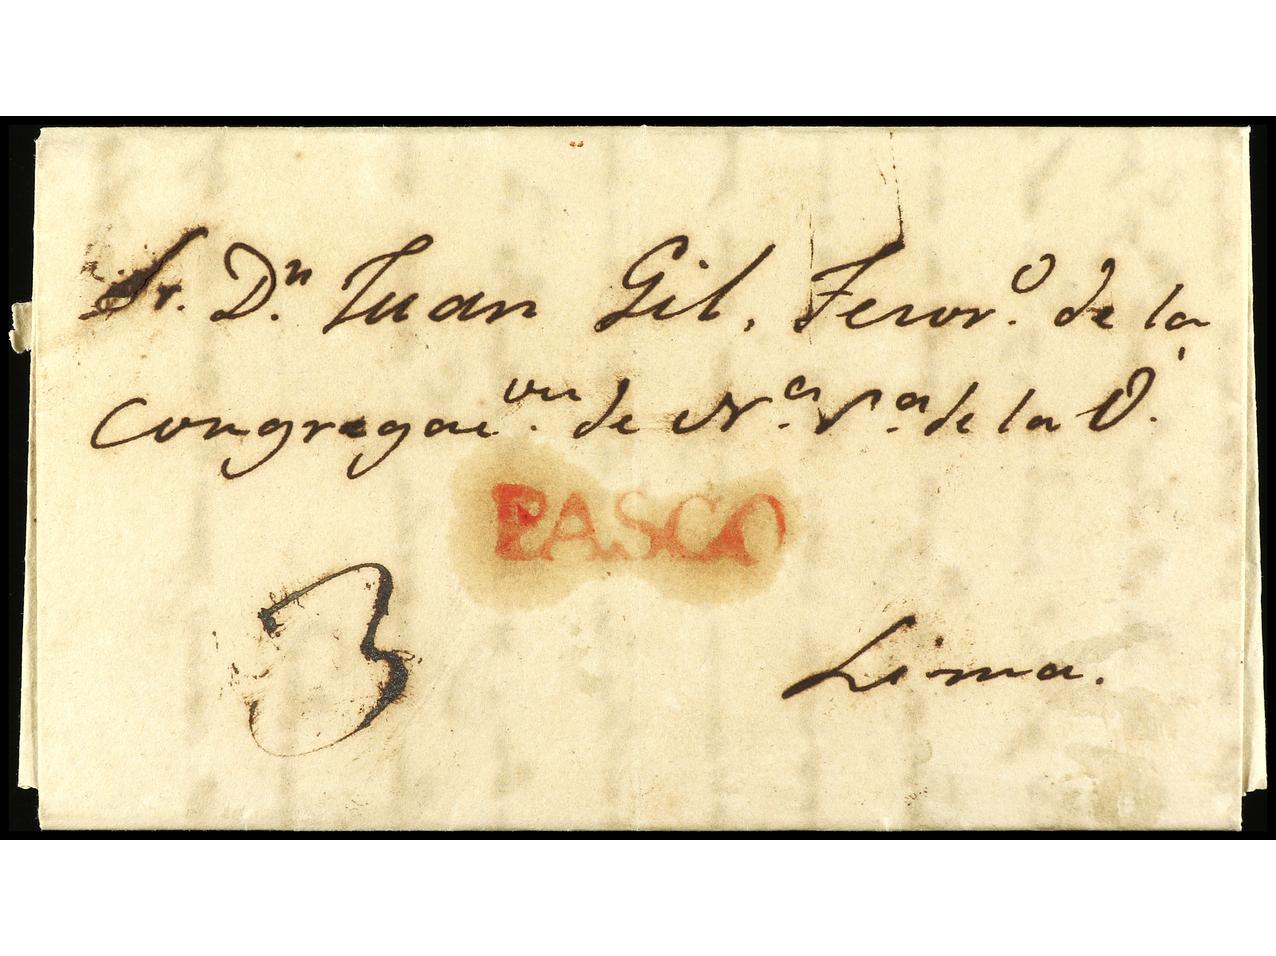 Sr. Dn. Juan Gil, Tesor.o de la
Congregac.on de N.a S.a de la O.
PASCO
3
Lima.